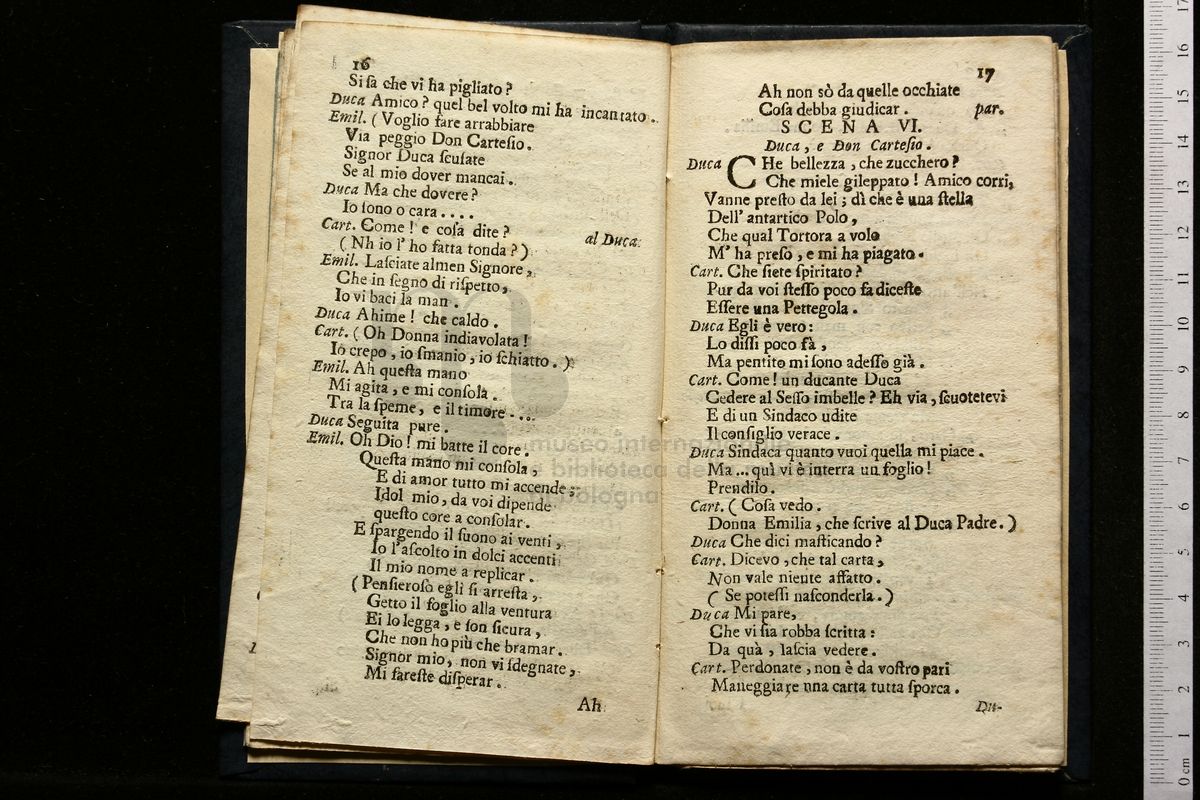 16
Si ſa che vi ha pigliato ?
Duca Amico ? quel bel volto mi ha incantato .
Emil. ( Voglio fare arrabbiare
Via peggio Don Carteſio .
Signor Duca ſcuſate
Se al mio dover mancai .
Duca Ma che dovere ?
Io ſono o cara . . . .
Cart. Come ! e coſa dite ? al Duca.
( Nh io l' ho fatta tonda ? )
Emil. Laſciate almen Signore ,
Che in ſegno di riſpetto ,
Io vi baci la man .
Duca Ahime ! che caldo .
Cart. ( Oh Donna indiavolata !
Io crepo , io ſmanio , io ſchiatto . )
Emil. Ah queſta mano
Mi agita , e mi conſola .
Tra la ſpeme , e il timore . . . .
Duca Seguita pure .
Emil. Oh Dio ! mi batte il core .
Queſta mano mi conſola ,
E di amor tutto mi accende ;
Idol mio , da voi dipende
queſto core a conſolar .
E ſpargendo il ſuono ai venti ,
Io l'aſcolto in dolci accenti
Il mio nome a replicar .
( Penſieroſo egli ſi arreſta ,
Getto il foglio alla ventura
Ei lo legga , e ſon ſicura ,
Che non ho più che bramar .
Signor mio , non vi ſdegnate ,
Mi fareſte diſperar .
Ah
17
Ah non sò da quelle occhiate
Coſa debba giudicar . par.
SCENA VI.
Duca , e Don Carteſio .
Duca CHe bellezza , che zucchero ?
Che miele gileppato ! Amico corri,
Vanne preſto da lei ; dì che è una ſtella
Dell' antartico Polo ,
Che qual Tortora a volo
M' ha preſo , e mi ha piagato .
Cart. Che ſiete ſpiritato ?
Pur da voi ſteſſo poco fa diceſte
Eſſere una Pettegola .
Duca Egli è vero :
Lo diſſi poco fà ,
Ma pentito mi ſono adeſſo già .
Cart. Come ! un ducante Duca
Cedere al Seſſo imbelle ? Eh via , ſcuotetevi
E di un Sindaco udite
Il conſiglio verace .
Duca Sindaca quanto vuoi quella mi piace .
Ma ... quì vi è in terra un foglio !
Prendilo .
Cart. ( Coſa vedo .
Donna Emilia , che ſcrive al Duca Padre . )
Duca Che dici maſticando ?
Cart. Dicevo , che tal carta ,
Non vale niente affatto .
( Se poteſſi naſconderla . )
Duca Mi pare,
Che vi ſia robba ſcritta :
Da quà , laſcia vedere .
Cart. Perdonate , non è da voſtro pari
Maneggiare una carta tutta ſporca .
Du-
museo internazionale
e biblioteca della musica
di bologna